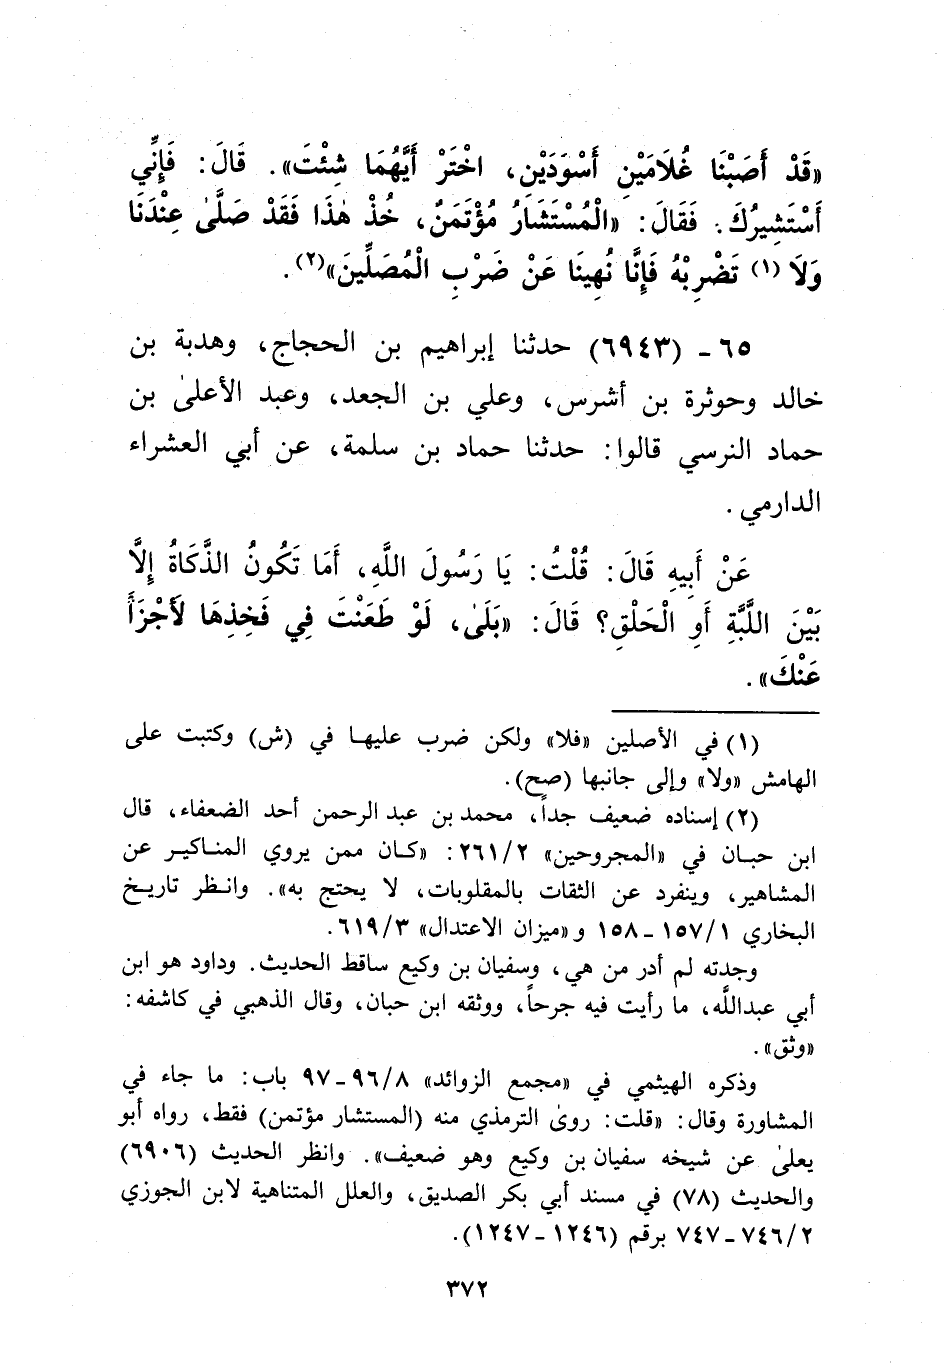 «قَدْ أَصَبْنَا غُلَامَيْنِ أَسْوَدَيْنِ، اخْتَرْ أَيَّهُمَا شِئْتَ». قَالَ: فَإِنِّي
أَسْتَشِيرُكَ. فَقَالَ: «الْمُسْتَشَارُ مُؤْتَمَنٌ، خُذْ هٰذَا فَقَدْ صَلَّىٰ عِنْدَنَا
وَلَا (١) تَضْرِبْهُ فَإِنَّا نُهِينَا عَنْ ضَرْبِ الْمُصَلِّينَ»(٢).
٦٥ - (٦٩٤٣) حدثنا إبراهيم بن الحجاج، وهدبة بن
خالد وحوثرة بن أشرس، وعلي بن الجعد، وعبد الأعلىٰ بن
حماد النرسي قالوا: حدثنا حماد بن سلمة، عن أبي العشراء
الدارمي.
عَنْ أَبِيهِ قَالَ: قُلْتُ: يَا رَسُولَ اللَّهِ، أَمَا تَكُونُ الذَّكَاةُ إِلَّا
بَيْنَ اللَّبَّةِ أَوِ الْحَلْقِ؟ قَالَ: «بَلَىٰ، لَوْ طَعَنْتَ فِي فَخِذِهَا لَأَجْزَأَ
عَنْكَ».
(١) في الأصلين «فلا» ولكن ضرب عليها في (ش) وكتبت على
الهامش «ولا» وإلى جانبها (صح).
(٢) إسناده ضعيف جداً، محمد بن عبد الرحمن أحد الضعفاء، قال
ابن حبان في «المجروحين» ٢/ ٢٦١: «كان ممن يروي المناكير عن
المشاهير، وينفرد عن الثقات بالمقلوبات، لا يحتج به». وانظر تاريخ
البخاري ١/ ١٥٧ - ١٥٨ و«ميزان الاعتدال» ٣/ ٦١٩.
وجدته لم أدر من هي، وسفيان بن وكيع ساقط الحديث. وداود هو ابن
أبي عبداللَّه، ما رأيت فيه جرحاً، ووثقه ابن حبان، وقال الذهبي في كاشفه:
«وثق».
وذكره الهيثمي في «مجمع الزوائد» ٨/ ٩٦ - ٩٧ باب: ما جاء في
المشاورة وقال: «قلت: روىٰ الترمذي منه (المستشار مؤتمن) فقط، رواه أبو
يعلىٰ عن شيخه سفيان بن وكيع وهو ضعيف». وانظر الحديث (٦٩٠٦)
والحديث (٧٨) في مسند أبي بكر الصديق، والعلل المتناهية لابن الجوزي
٢/ ٧٤٦ - ٧٤٧ برقم (١٢٤٦ - ١٢٤٧).
٣٧٢